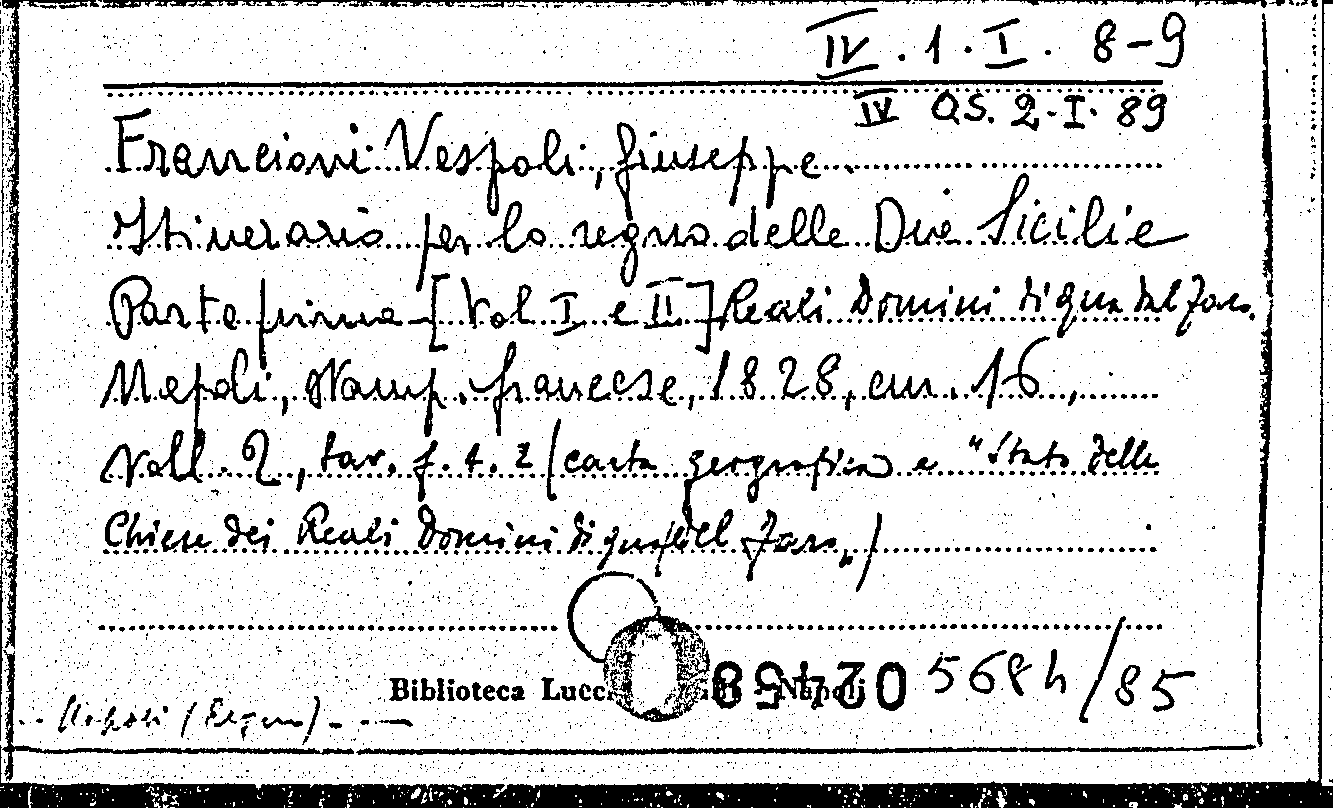 IV . 1 . I . 8-9
IV QS. 2. I. 89
Francioni Vespoli, Giuseppe
Itinerario per lo regno delle Due Sicilie
Parte prima [Vol I e II] Reali Domini di qua dal Faro.
Napoli, Stamp. francese, 1828, cm. 16,
Voll. 2, tav. f. t. 2 (carta geografica e "Stato delle
Chiese dei Reali Domini di qua del Faro")
Biblioteca Napoli
5684/85
Napoli (Regno)